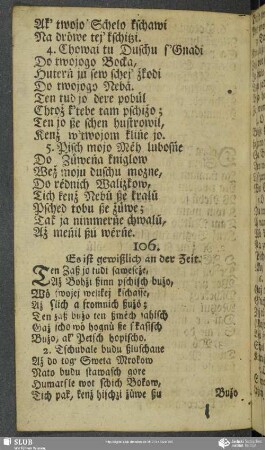 Ak' twojo Schelo kschawi
Na drówe tej' kschitzi.
4. Chowai tu Duschu s'Gnadi
Do twojogo Bocka,
Hutera ju sew schej' zkodi
Do twojogo Nebá.
Ten tud jo dere pobúl
Chtož k'tebe tam pschizo;
Ten jo ste schen hustrowil,
Kenž w'twojom klúne jo.
5. Pisch mojo Méh lubosne
Do Zúwena kniglow
Wež moju duschu mozne,
Do rédnich Walizkow,
Tich kenž Nebú ste kralú
Psched tobu ste zúwe;
Tak ja nimmerže chwalú,
Až menil su wérne.
106.
Es ist gewißlich an der Zeit.
Ten Zaß jo tudi samescže,
Až Bohži sinn pschisch bužo,
Wó swojej welikej kschasse,
Až slich a fromnich sužo;
Ten zaß bužo ten sméch tahisch
Gaž scho wó hognú ste skasisch
Bužo, ak' Petsch hopischo.
2. Tschubale budu stuschane
Až do tog' Sweta Mrokow
Nato budu stawasch gore
Humarsle wot schich Bokow,
Tich pak, kenž hischži žúwe su
Bužo
SLUB